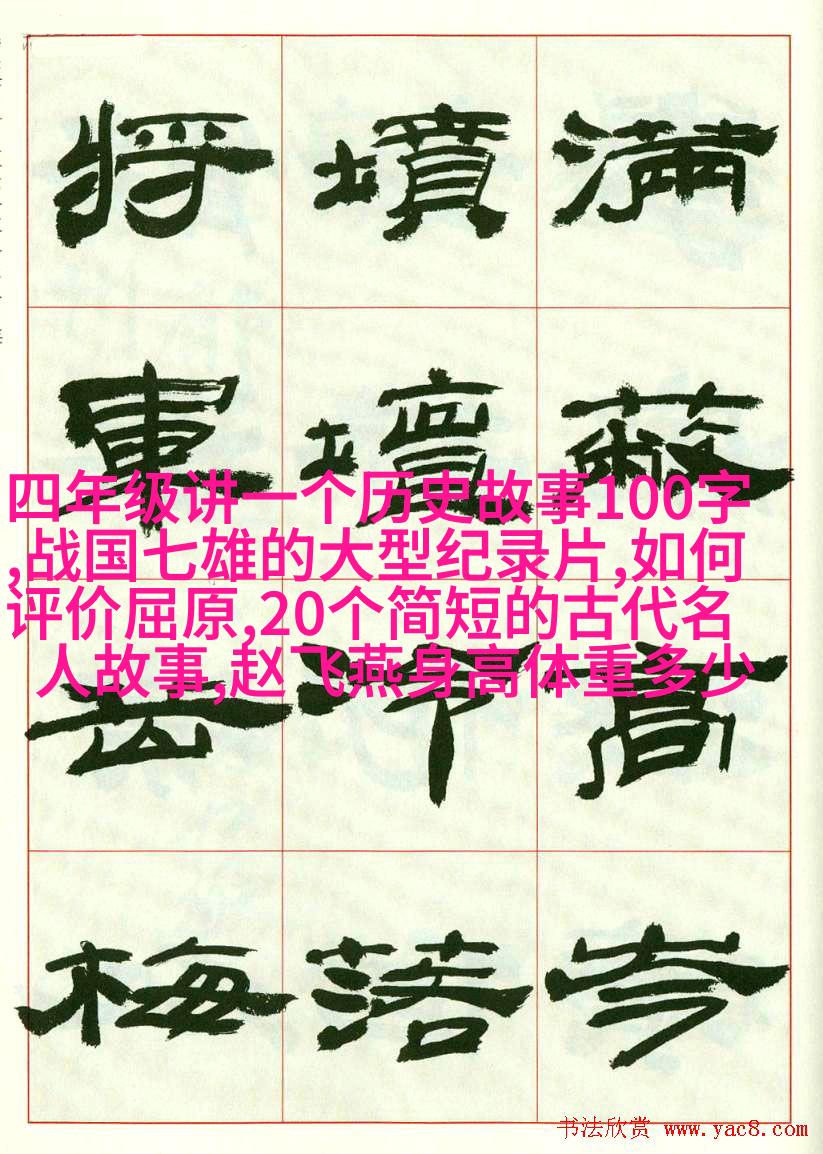 满蔽高岑
墳壇冷落
将軍岳梅
四年级讲一个历史故事100字
,战国七雄的大型纪录片,如何
评价屈原,20个简短的古代名
人故事,赵飞燕身高体重多少
书法欣赏 www.yac8.com